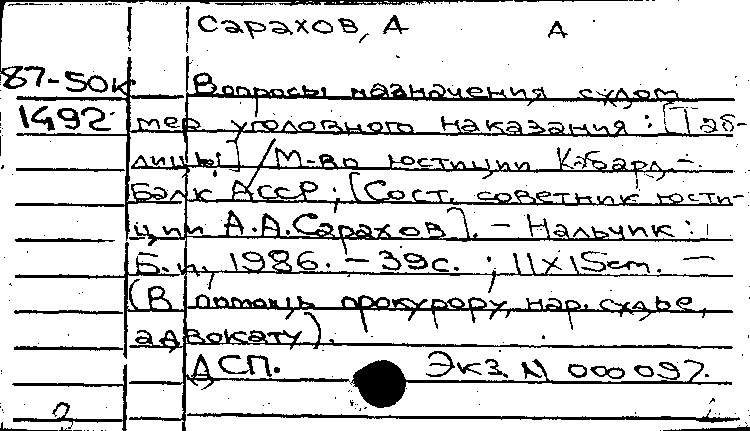 Сарахов, А А
87-50к Вопросы назначения судом
1492 мер уголовного наказания: [Таб-
лицы] / М-во юстиции Кабард.-
Балк АССР; [Сост. советник юсти-
ции А.А.Сарахов]. - Нальчик:
Б.и., 1986. - 39с. ; 11х15см. -
(В помощь прокурору, нар. судье,
адвокату).
ДСП. Экз. N 000097.